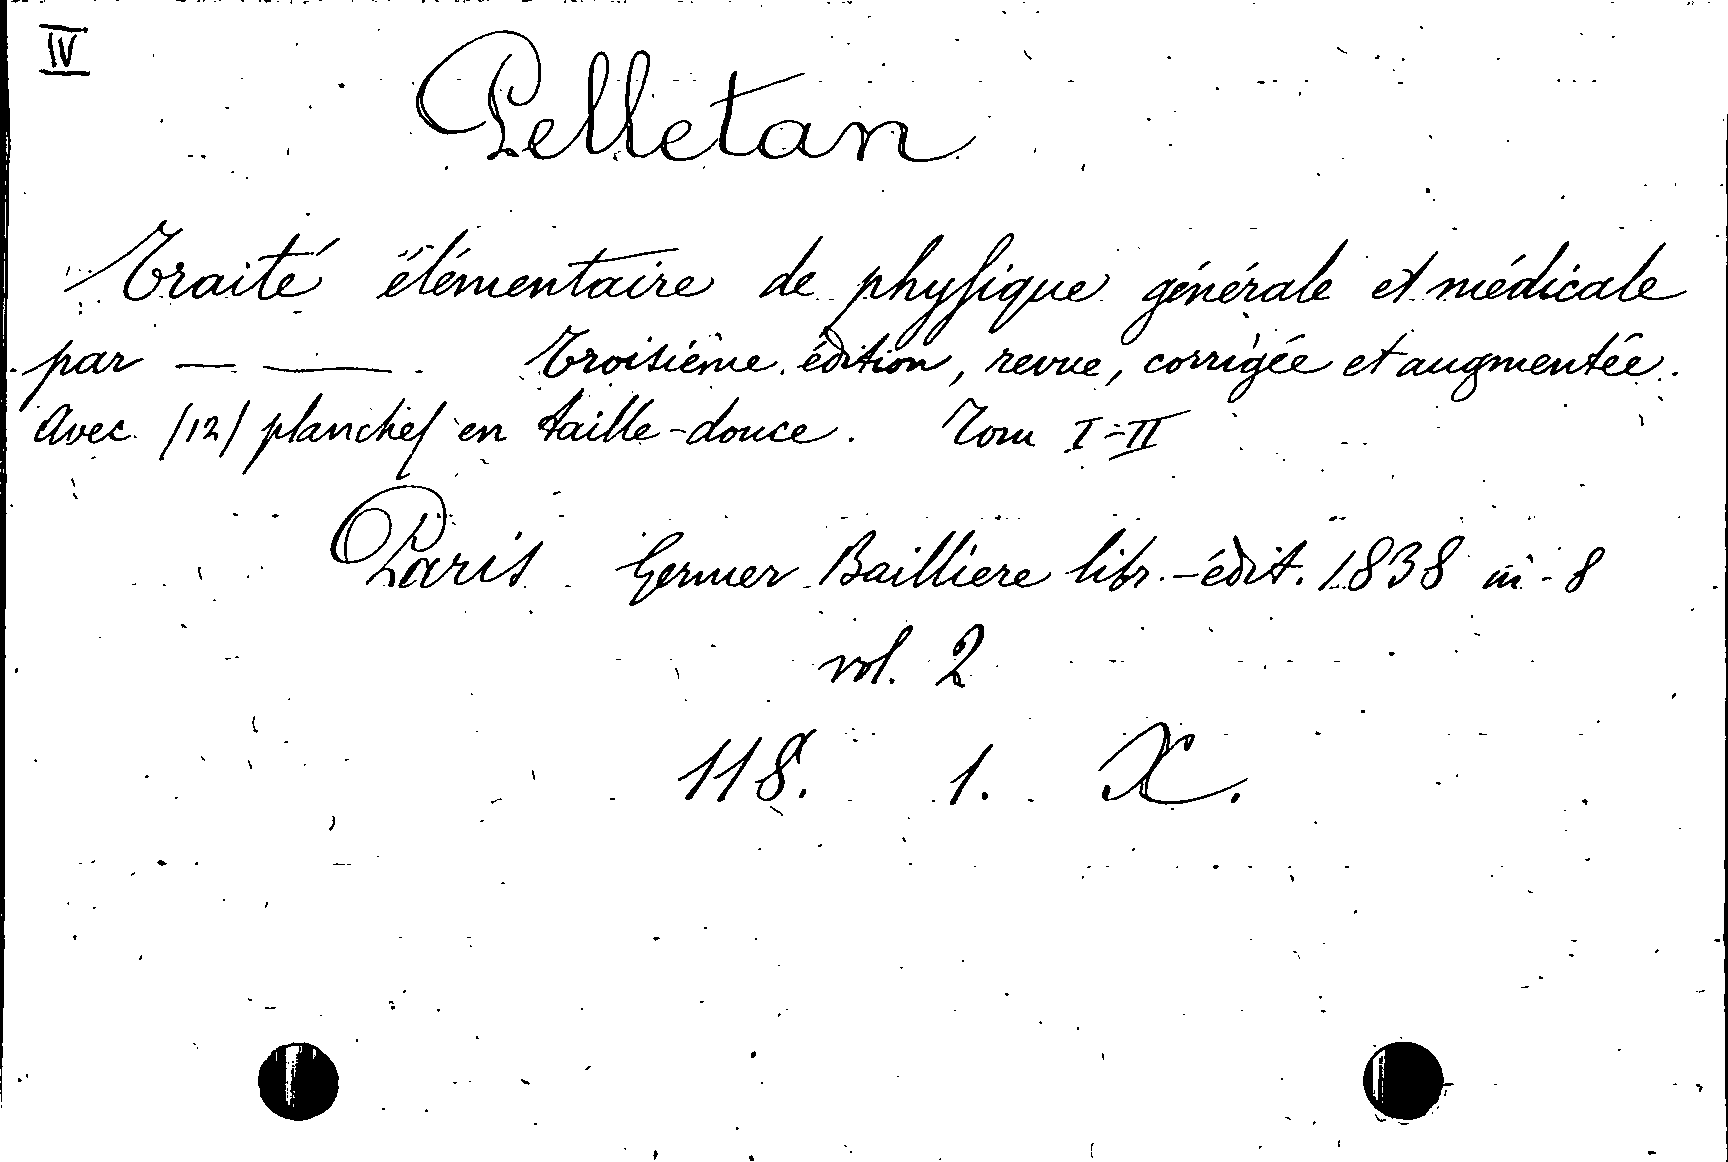 IV
Pelletan
Traité élémentaire de physique générale et médicale
par — —— . Troisième édition, revue, corrigée et augmentée.
Avec /12/ planches en taille-douce. Tom I-II
Paris Germer Bailliere libr.-édit. 1838 in-8
vol. 2
118. 1. X.